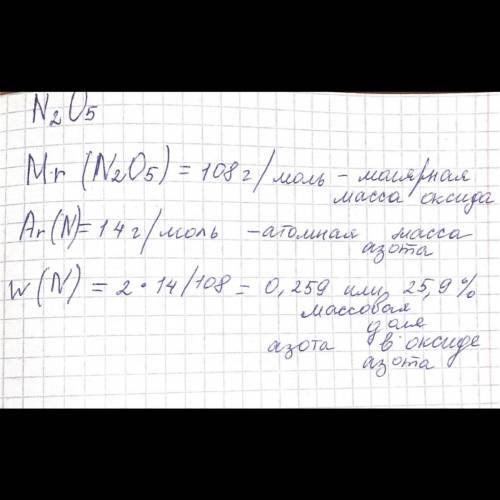 N₂O₅
Mr (N₂O₅) = 108 г/моль - молярная
масса оксида
Ar(N) = 14 г/моль - атомная масса
азота
W (N) = 2 · 14/108 = 0,259 или 25,9%
массовая
доля
азота в оксиде
азота